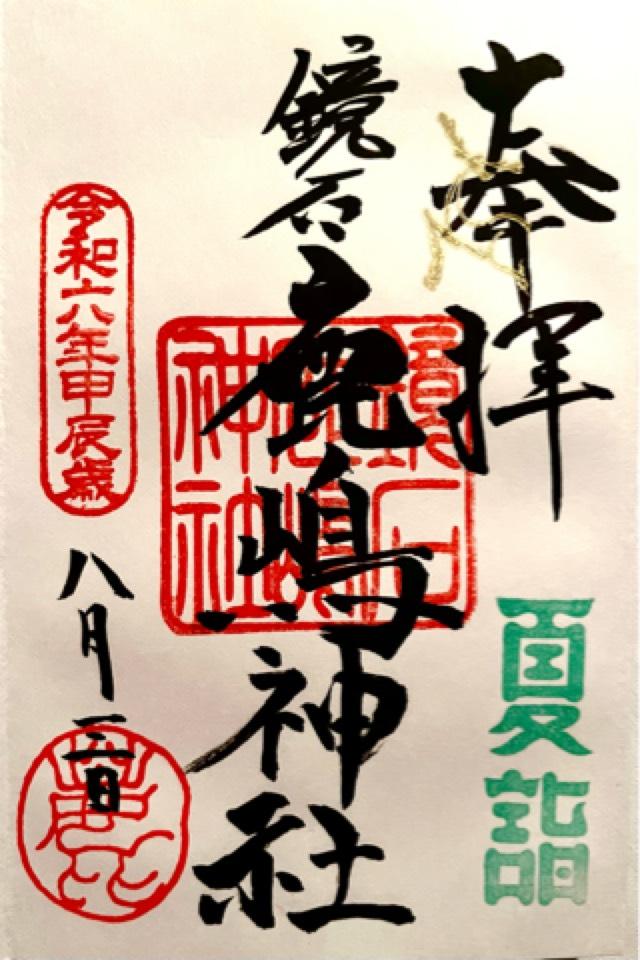 奉拝
夏詣
鏡石
鹿嶋神社
鏡石
鹿嶋
神社
令和六年甲辰歳
八月三日